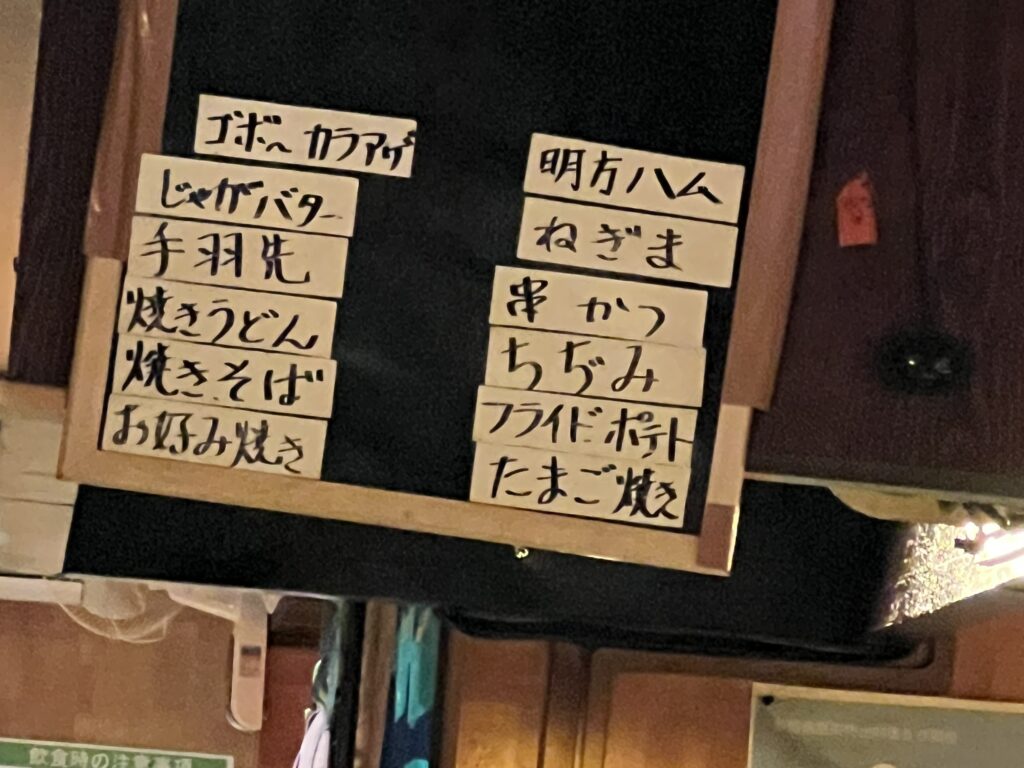 ゴボーカラアゲ
じゃがバター
手羽先
焼きうどん
焼きそば
お好み焼き
明方ハム
ねぎま
串かつ
ちぢみ
フライドポテト
たまご焼き
飲食時の注意事項